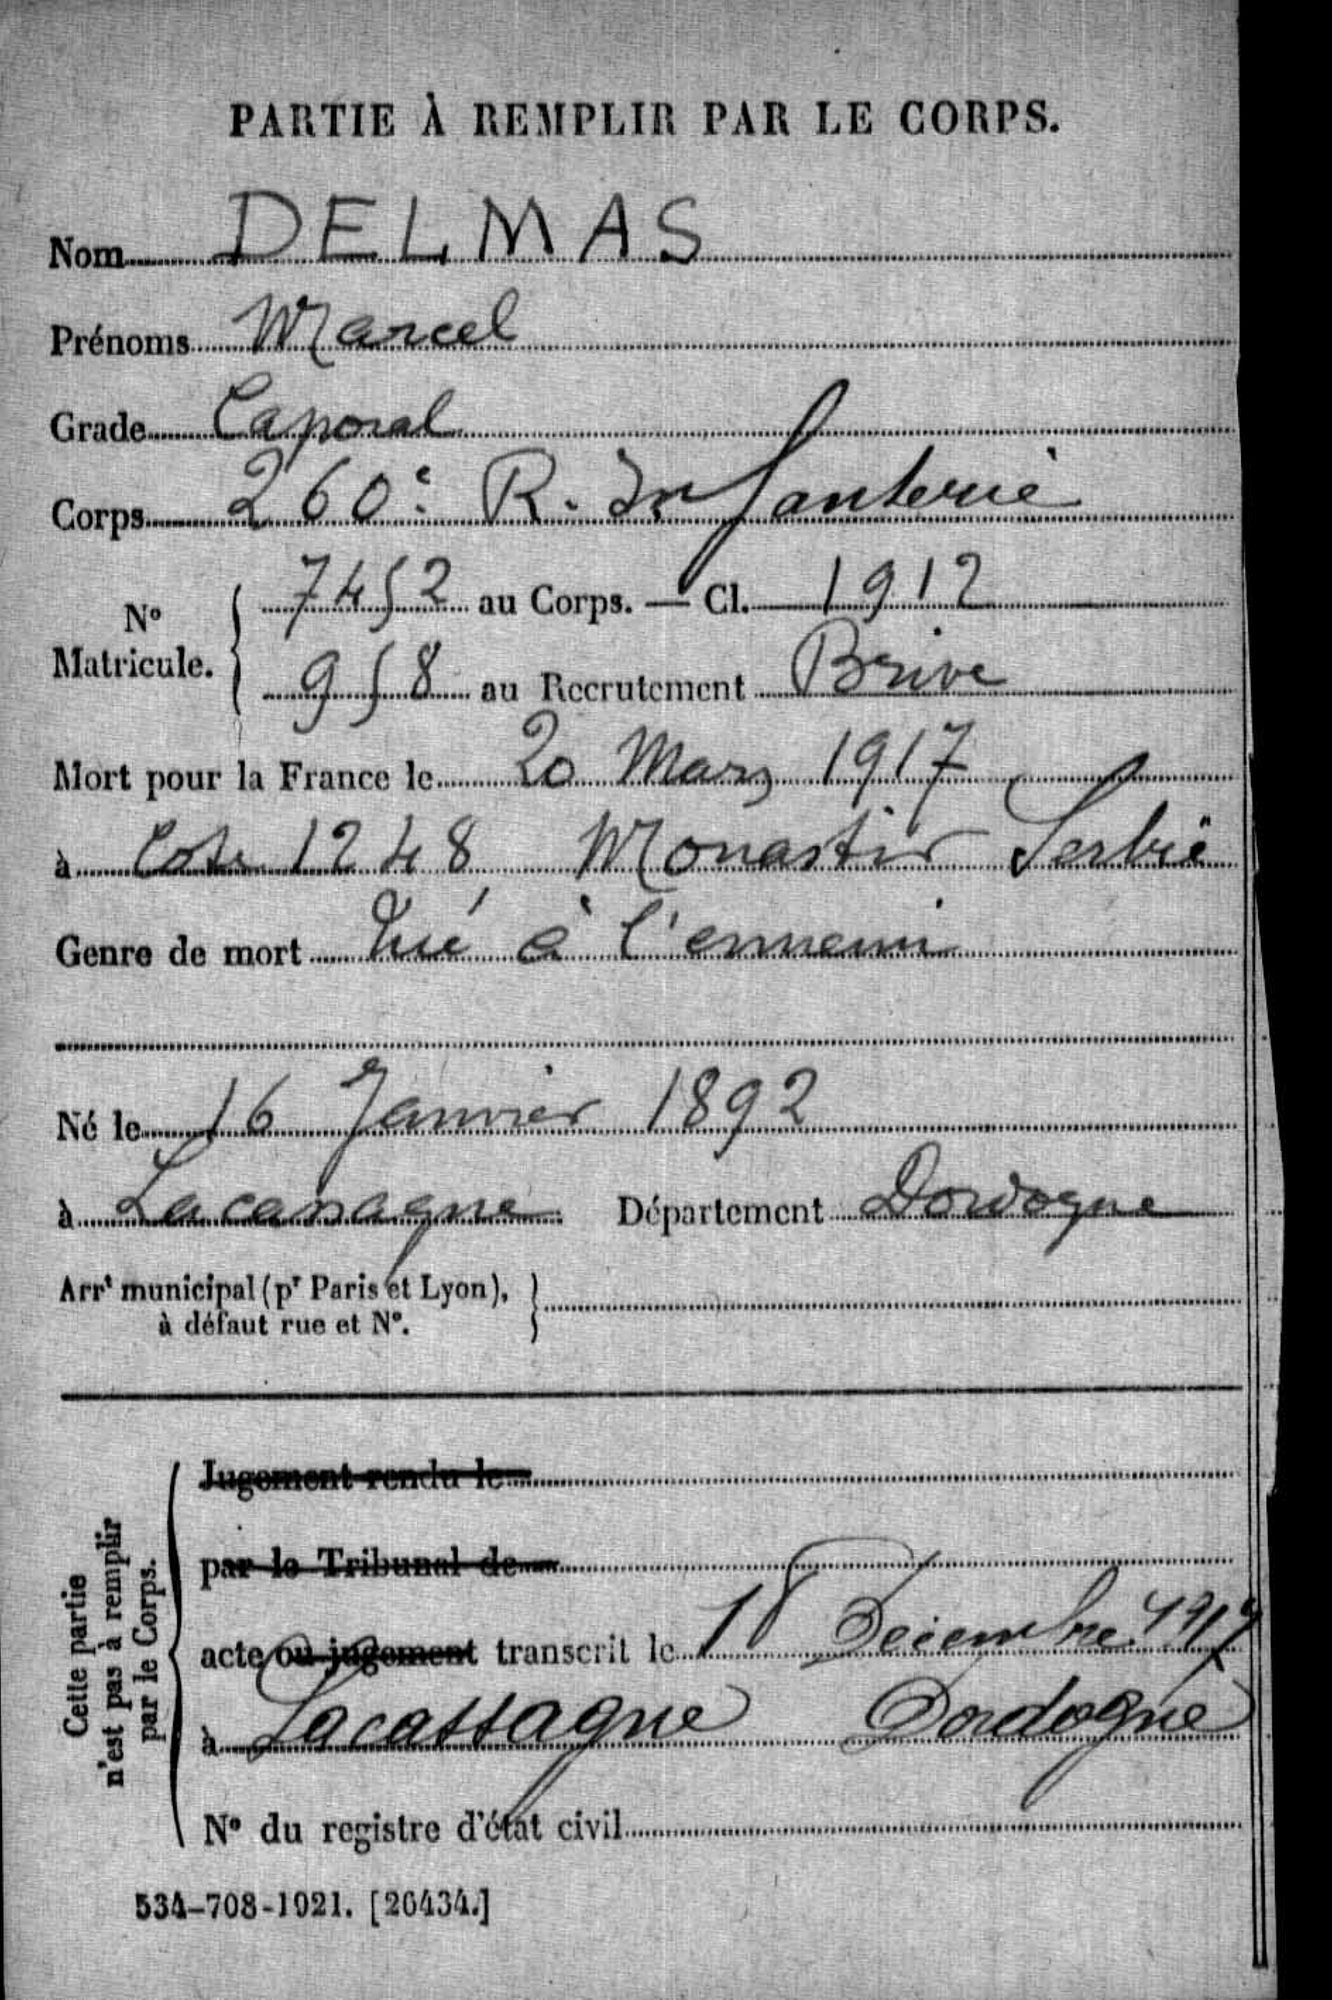 PARTIE À REMPLIR PAR LE CORPS.
Nom DELMAS
Prénoms Marcel
Grade Caporal
Corps 260e R. Infanterie
No Matricule. { 7452 au Corps. — Cl. 1912
958 au Recrutement Brive
Mort pour la France le 20 Mars 1917
à Cote 1248 Monastir Serbie
Genre de mort tué à l'ennemi
Né le 16 Janvier 1892
à Lacassagne Département Dordogne
Arrt municipal (pr Paris et Lyon), }
à défaut rue et No.
Cette partie n'est pas à remplir par le Corps.
Jugement rendu le
par le Tribunal de
acte ou jugement transcrit le 18 Décembre 1917
à Lacassagne Dordogne
No du registre d'état civil
534-708-1921. [26434.]